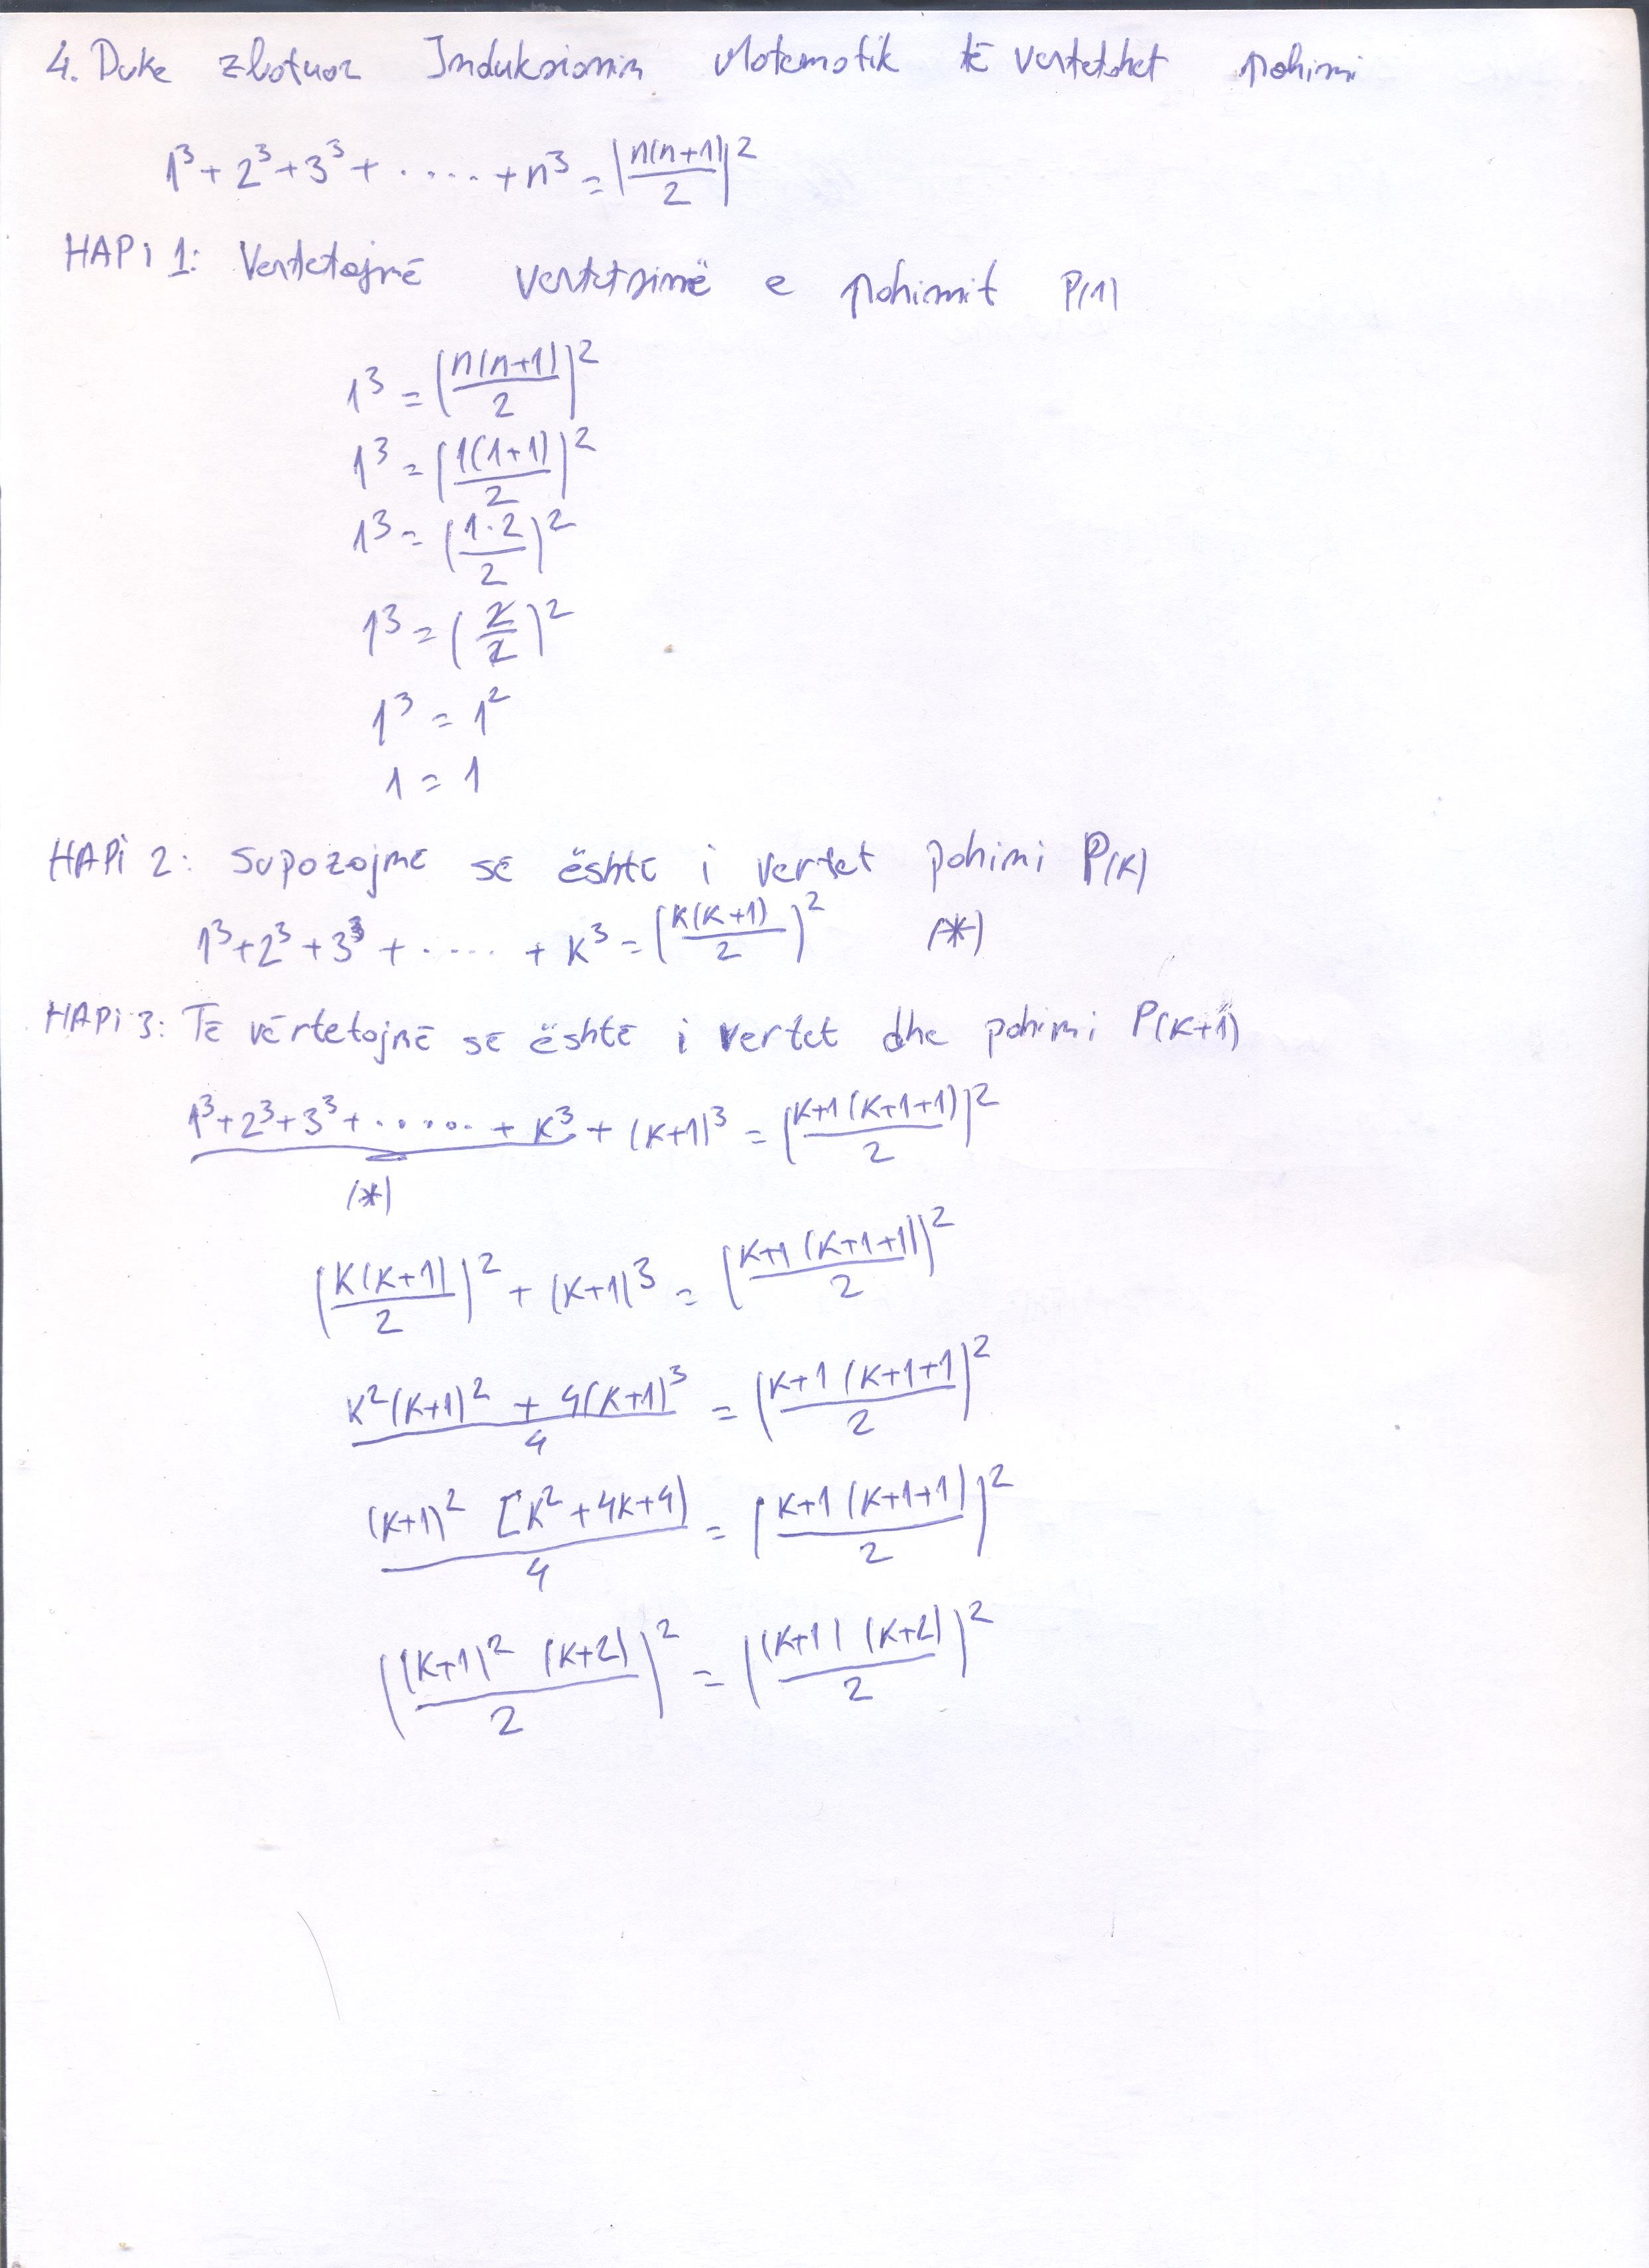 4. Duke zbatuar Induksionin Matematik të vertetohet pohimi
1³ + 2³ + 3³ + ..... + n³ = (n(n+1)/2)²
HAPi 1: Vertetojmë vertetsinë e pohimit P(1)
1³ = (n(n+1)/2)²
1³ = (1(1+1)/2)²
1³ = (1·2/2)²
1³ = (2/2)²
1³ = 1²
1 = 1
HAPi 2: Supozojmë se është i vertet pohimi P(K)
1³ + 2³ + 3³ + ..... + K³ = (K(K+1)/2)² (*)
HAPi 3: Të vërtetojmë se është i vertet dhe pohimi P(K+1)
1³ + 2³ + 3³ + ..... + K³ + (K+1)³ = (K+1(K+1+1)/2)²
(*)
(K(K+1)/2)² + (K+1)³ = (K+1(K+1+1)/2)²
K²(K+1)² + 4(K+1)³/4 = (K+1(K+1+1/2)²
(K+1)² [K²+4K+4)/4 = (K+1(K+1+1)/2)²
((K+1)² (K+2)/2)² = ((K+1) (K+2)/2)²